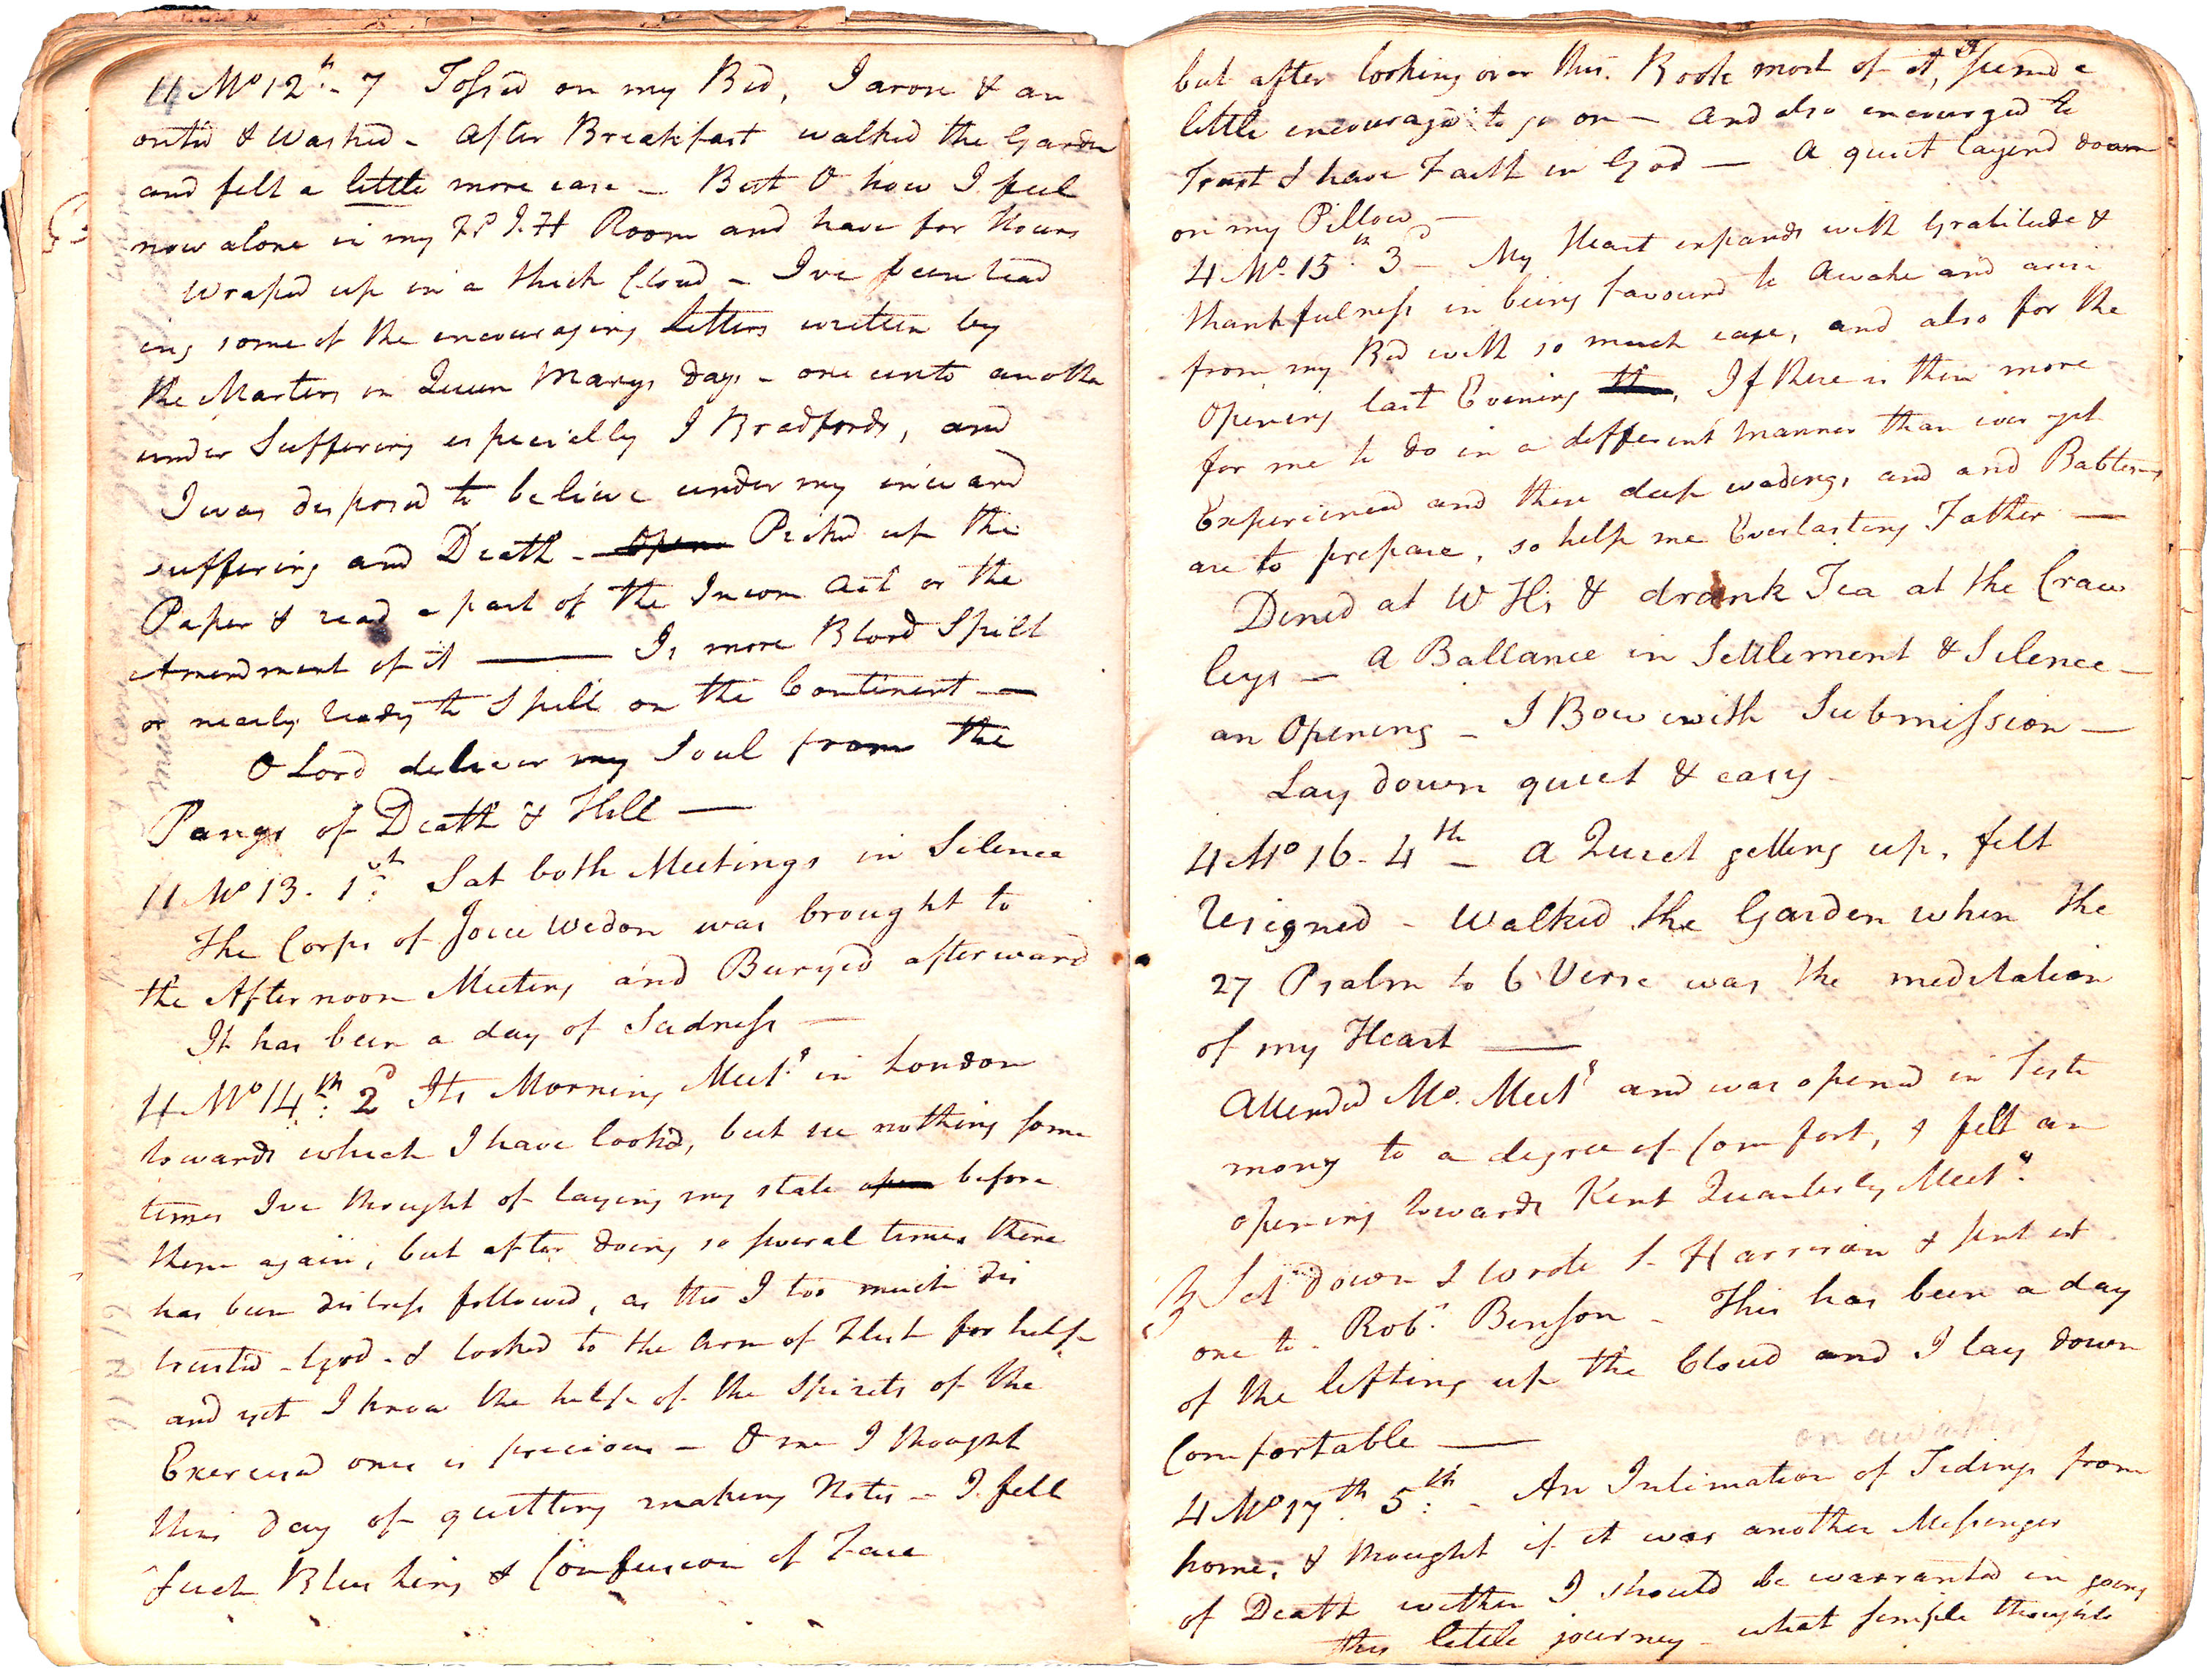 4 Mo 12th - 7 Tossd on my Bed, I arose & an
ointd & Washed - After Breakfast walked the Garden
and felt a little more ease - But O how I feel
now alone in my Room and have for Hours
Wraped up in a thick Cloud - Ive been read
ing some of the encouraging Letters written by
the Marters in Queen Marys days - one unto another
under Suffering especially J Bradfords, and
I was disposed to believe under my inward
suffering and Death - Picked up the
Paper & read a part of the Incom Act or the
Amendment of it — Is more Blood Spilt
or nearly ready to Spill on the Continent —
O Lord deliver my Soul from the
Pangs of Death & Hell —
4 Mo 13. 1st Sat both Meetings in Silence
The Corps of Wedon was brought to
the Afternoon Meeting and Buryed afterward
It has been a day of Sadness —
4 Mo 14th: 2d Its Morning Meetg in London
towards which I have lookd, but see nothing some
times Ive thought of laying my state before
them again, but after doing so several times there
has been distress followed, as tho I too much dis
trusted - God - & looked to the Arm of Flesh for help
and yet I know the help of the Spirits of the
Exercised ones is precious - I thought
this day of quitting making Notes - I felt
such Blushing & Confusion of Face
but after looking over this Book most of it, seemd a
little encouraged to go on - and also encourged to
Trust I have Faith in God — A quiet layend down
on my Pillow —
4 Mo. 15th 3d - My Heart expands with Gratitude &
thankfulness in being favourd to Awake and arise
from my Bed with so much ease, and also for the
Opening last Evening, If there is then more
for me to do in a different manner than ever yet
Experienced and these deep wadings and and Babtisms
are to prepare, so help me Everlasting Father —
Dined at W Hs & drank Tea at the Craw
leys - A Ballance in Settlement & Silence -
an Opening - I Bow with Submission —
Lay down quiet & easy -
4 Mo 16. 4th - A Quiet getting up, felt
Resigned - Walked the Garden when the
27 Psalm to 6 Verse was the meditation
of my Heart —
Attended Mo. Meetg and was opened in Testi
mony to a degree of Comfort, & felt an
opening towards Kent Quarterly Meetg.
Set down & wrote S Harrison & sent it
one to Robt. Benson - This has been a day
of the lifting up the Cloud and I lay down
Comfortable —
on awaking
4 Mo 17th. 5th: - An Intimation of Tidings from
home, & thought if it was another Messenger
of Death wether I should be warranted in going
this little journey - what simple thoughts